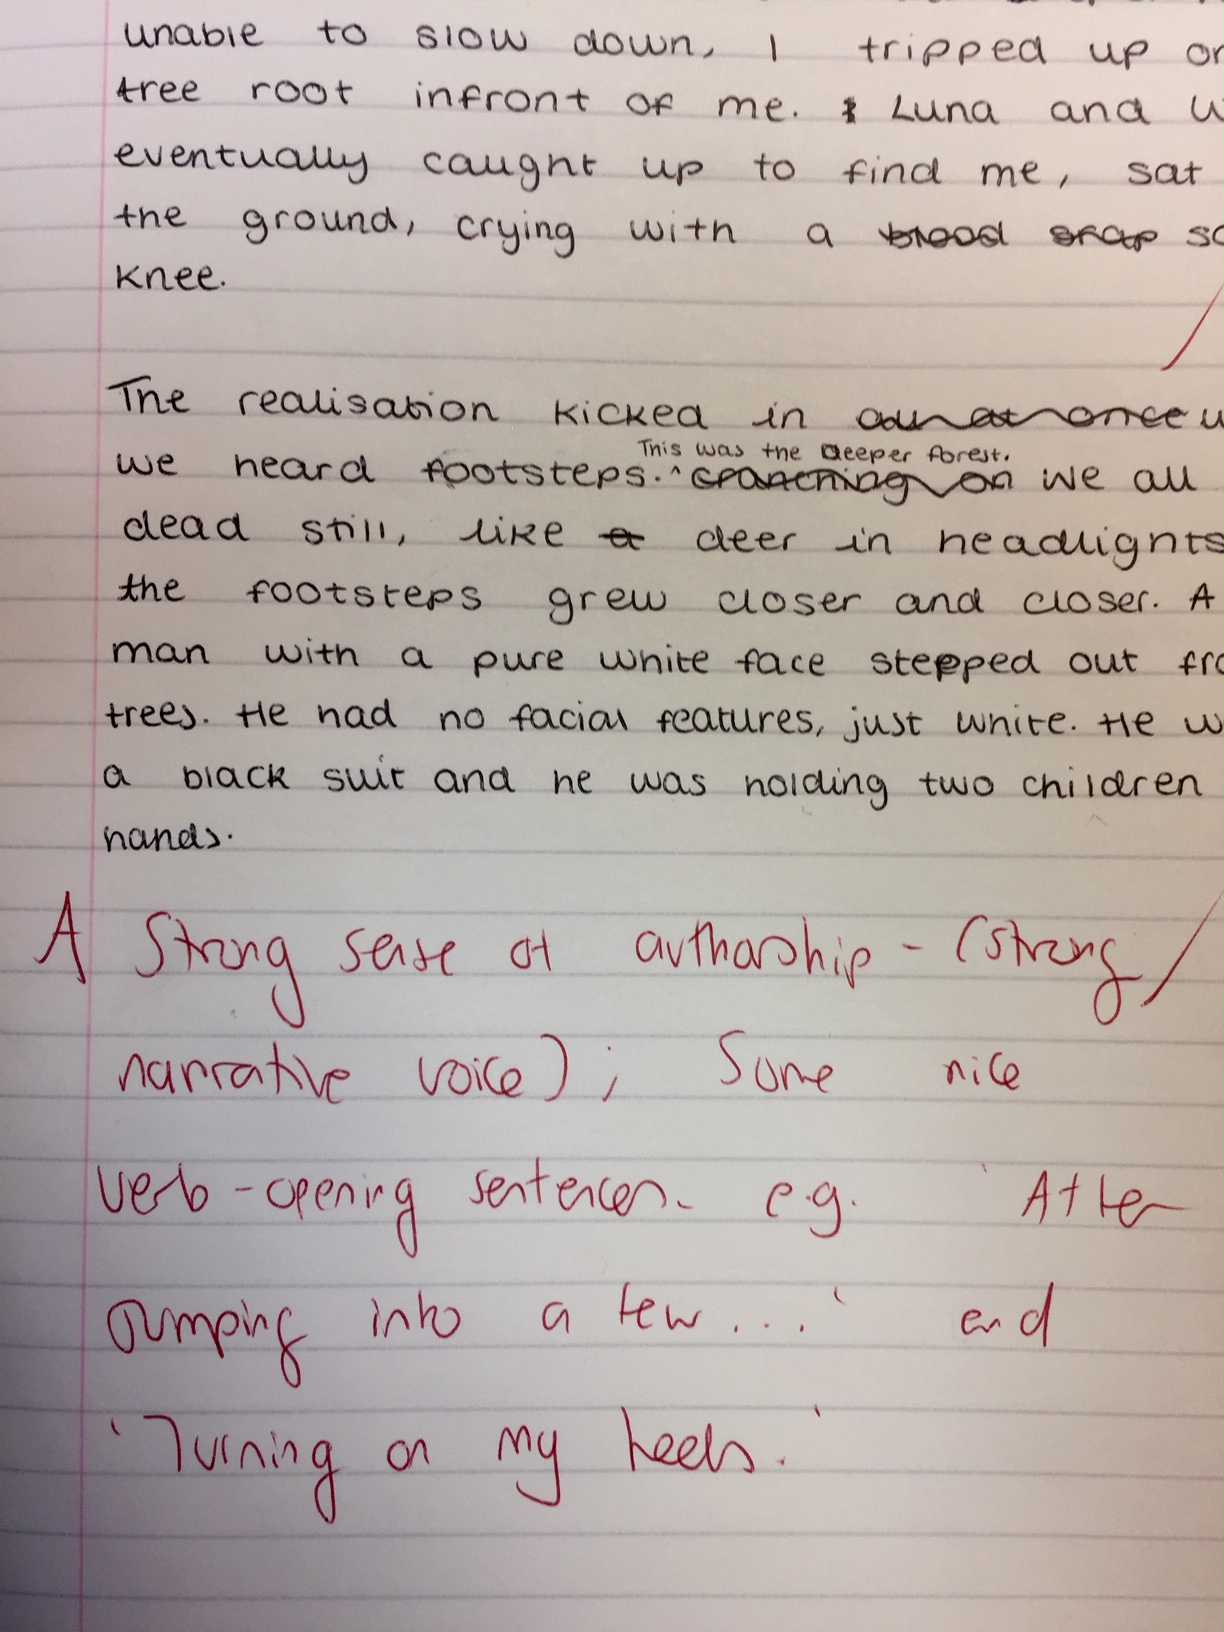 unable to slow down, I tripped up
tree root infront of me. Luna and
eventually caught up to find me, sat
the ground, crying with a blood scrap
knee.
The realisation kicked in all at once
This was the deeper forest.
we heard footsteps. ^ crunching on we all
dead still, like a deer in headlights
the footsteps grew closer and closer. A
man with a pure white face stepped out
trees. He had no facial features, just white. He
a black suit and he was holding two children
hands.
A Strong sense of authorship - (strong
narrative voice); Some nice
verb-opening sentences. e.g. 'After
jumping into a few...' and
'Turning on my heels.'